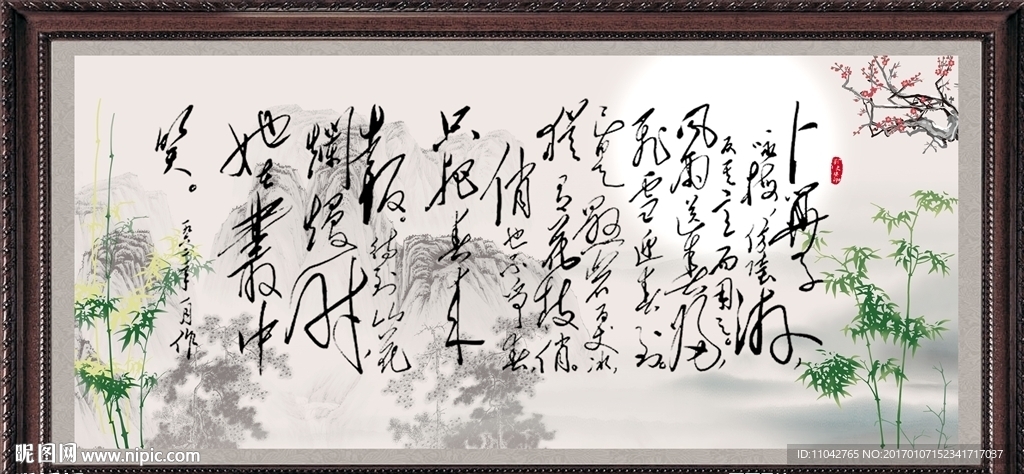 卜算子
咏梅 仿陸游,
反其意而用之。
風雨送春歸,
飛雪迎春到。
已是懸崖百丈冰,
猶有花枝俏。
俏也不争春,
只把春來
報。待到山花
爛熳時
她在叢中
笑。
月作
昵图网 www.nipic.com
ID:11042765 NO:20170107152341717037